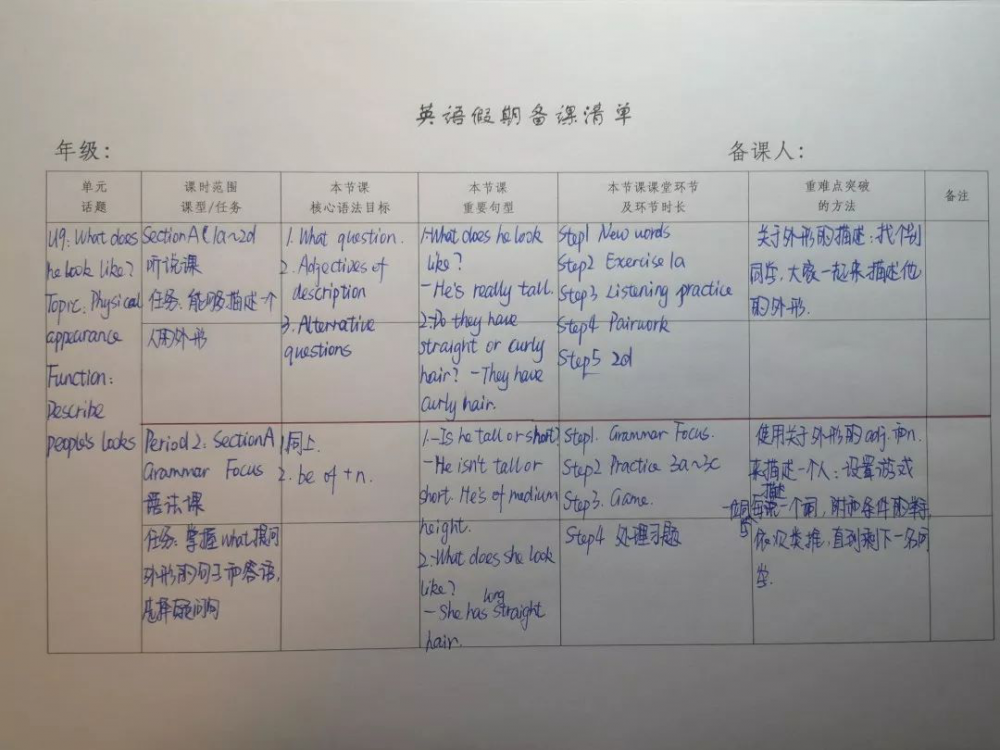 英语假期备课清单
年级：
备课人：
单元
话题
课时范围
课型/任务
本节课
核心语法目标
本节课
重要句型
本节课课堂环节
及环节时长
重难点突破
的方法
备注
U9: What does
he look like?
Topic: Physical
appearance
Function:
Describe
people's looks
Section A (1a~2d
听说课
任务: 能够描述一个
人的外形
1. What question.
2. Adjectives of
description
3. Alternative
questions
1.-What does he look
like?
-He's really tall.
2.-Do they have
straight or curly
hair? -They have
curly hair.
Step1 New words
Step2 Exercise 1a
Step3 Listening practice
Step4 Pairwork
Step5 2d
关于外形的描述: 找个别
同学, 大家一起来描述他
的外形.
Period 2. Section A
Grammar Focus
语法课
任务: 掌握what提问
外形的句子和答语,
选择疑问句
1.同上
2. be of + n.
1.-Is he tall or short?
-He isn't tall or
short. He's of medium
height.
2.-What does she look
like?
-She has long straight
hair.
Step1. Grammar Focus.
Step2 Practice 3a~3c
Step3. Game.
Step4 处理习题
使用关于外形的adj.和n.
来描述一个人: 设置游戏
描述一个词,
依次类推, 直到剩下一名同
学.